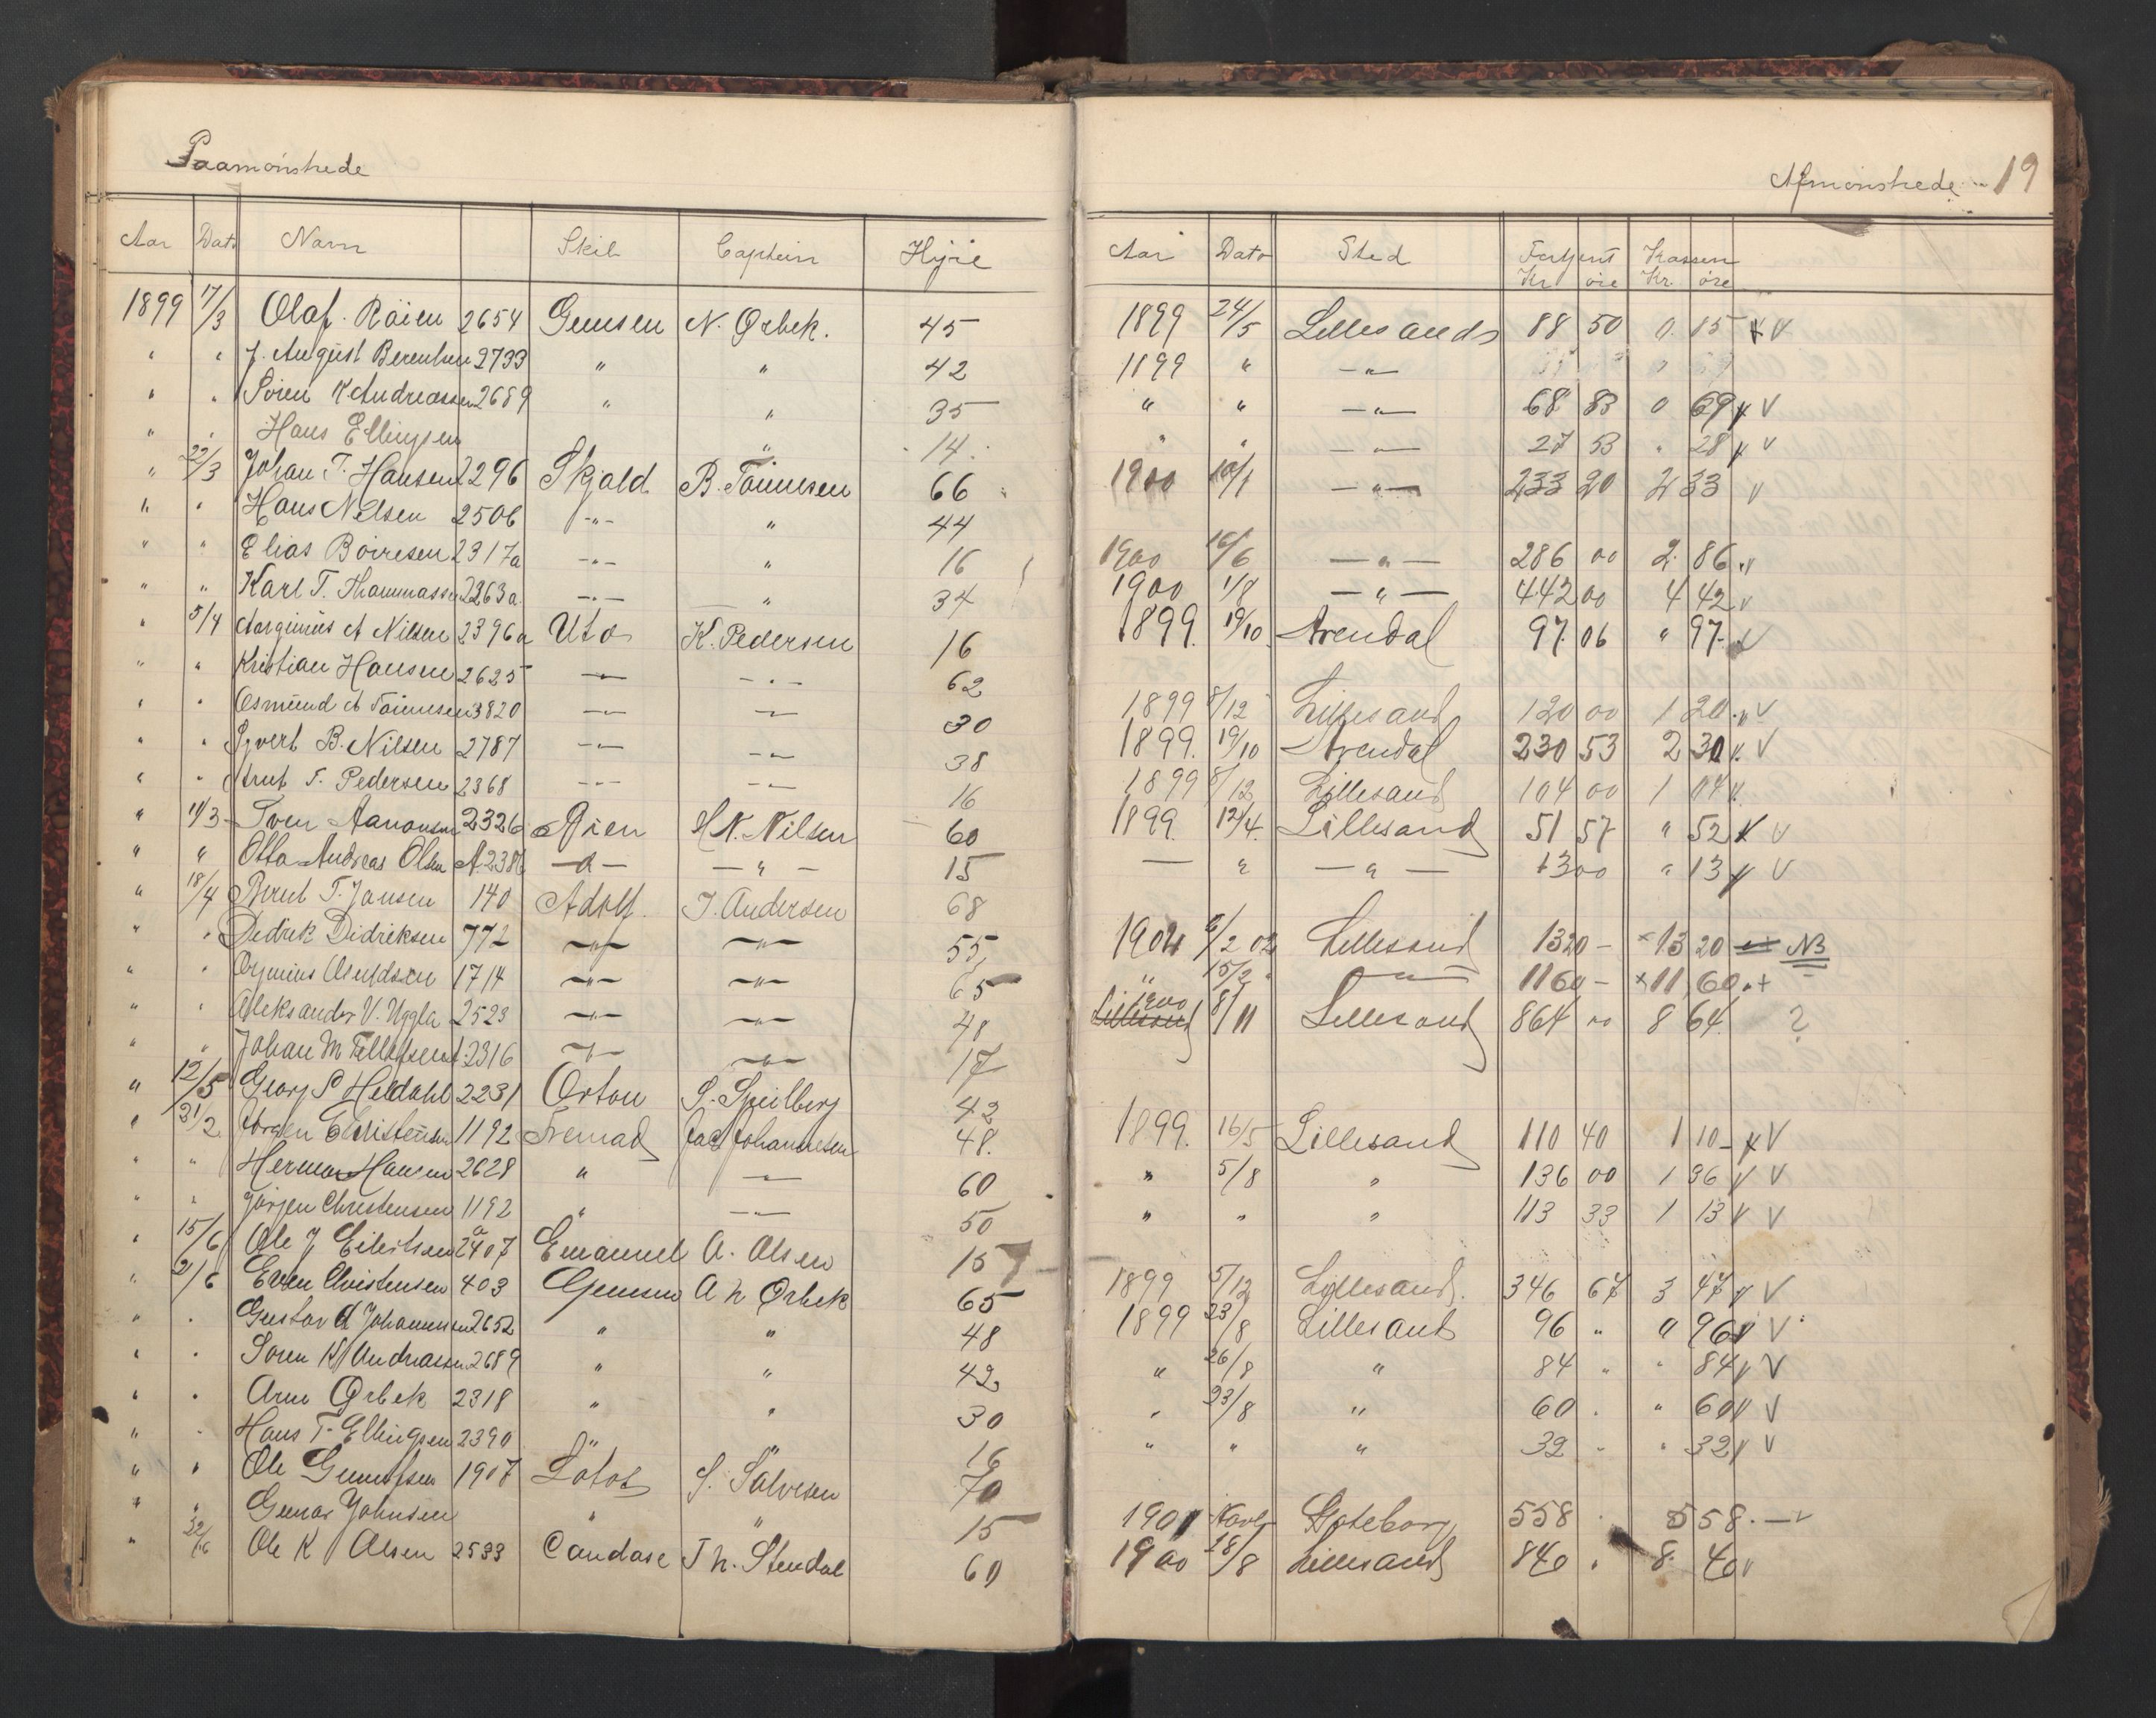 Paamønstrede
Afmønstrede 19
Aar Dato Navn Skib Captein Hyre
Aar Dato Sted Fortjent Kassen
Kr øre Kr. øre
1899 17/3 Olaf Röien 2654 Gemsen N. Ørbek. 45 1899 24/5 Lillesand 88 50 0. 15 V
" " J. August Berentsen 2733 " " 42 1899 " — " —
" " Sören K Andreassen 2689 " " 35 " " — " — 68 83 0 69 V
" " Hans Ellingsen " 14 " " — " — 27 53 " 28 V
" 22/3 Johan T. Hansen 2296 Skjald B. Tönnesen 66 1900 10/1 — " — 233 20 2 33 V
" " Hans Nilsen 2506 — " — " 44
" " Elias Börresen 2317a — " — " 16 1900 16/6 — " — 286 00 2 86 V
" " Karl T. Thommassen 2263a — " — " 34 1900 1/8 — " — 442 00 4 42 V
" 5/4 A Nilsen 2396a Uto K. Pedersen 16 1899. 19/10 Arendal 97 06 " 97 V
" " Kristian Hansen 2625 — " — — " — 62
" " Osmund A Tönnesen 3820 — " — — " — 30 1899 8/12 Lillesand 120 00 1 20 V
" " Syvert B. Nilsen 2787 — " — — " — 38 1899. 19/10 Arendal 230 53 2 30 V
" " Arnt T. Pedersen 2368 — " — — " — 16 1899 8/12 Lillesand 104 00 1 04
" 11/3 Sven Aanonsen 2326 Öien H N. Nilsen 60 1899. 12/4. Lillesand 51 57 " 52 V
" " Otto Andreas Olsen A. 2386 — " — — " — 15 — " — " — 13 00 " 13 V
" 18/4 Bernt T. Jansen 140 Adolf. T. Andersen 68
" " Didrik Didriksen 772 — " — — " — 55 1902 6/2 02 Lillesand 1320 — × 13 20 NB
" " 1714 — " — — " — 65 " 15/2 — " — 1160 — × 11,60
" " Aleksander V. Uggla 2523 — " — — " — 48 1900 8/11 Lillesand 864 00 8 64. ?
" " Johan M Tellefsen A. 2316 — " — — " — 17
" 12/5 Georg S Heldahl 2231 Orton S. Speilberg 42
" 31/2 Jörgen Christensen 1192 Fremad Jac Johannesen 48. 1899. 16/5 Lillesand 110 40 1 10 V
" " Herman Hansen 2628 " — " — 60 " 5/8 " 136 00 1 36 V
" " Jörgen Christensen 1192 " — " — 50 " " " 113 33 1 13 V
" 15/6 Ole J Eilertsen 2407a Emanuel A. Olsen 15
" 2/6 Even Christensen 403 Gemsen A N Ørbek 65 1899 5/12 Lillesand. 346 67 3 47 V
" " Gustav A Johannesen 2652 " " 48 1899 23/8 Lillesand 96 " " 96 V
" " Sören K Andreassen 2689 " " 42 " 26/8 " 84 " " 84 V
" " Arne Ørbek 2318 " " 30 " 23/8 " 60 . " 60 V
" " Hans T. Ellingsen 2390 " " 16 " " " 32 " " 32 V
" " Ole Gunufsen 1907 Lotos S. Salvesen 70
" " Gunar Johnsen " " 15 1901 Novbr Göteborg 558 . 5 58. —
" 22/6 Ole K Olsen 2533 Candase Th. Stendal 60 1900 18/8 Lillesand 840 . 8. 40 V